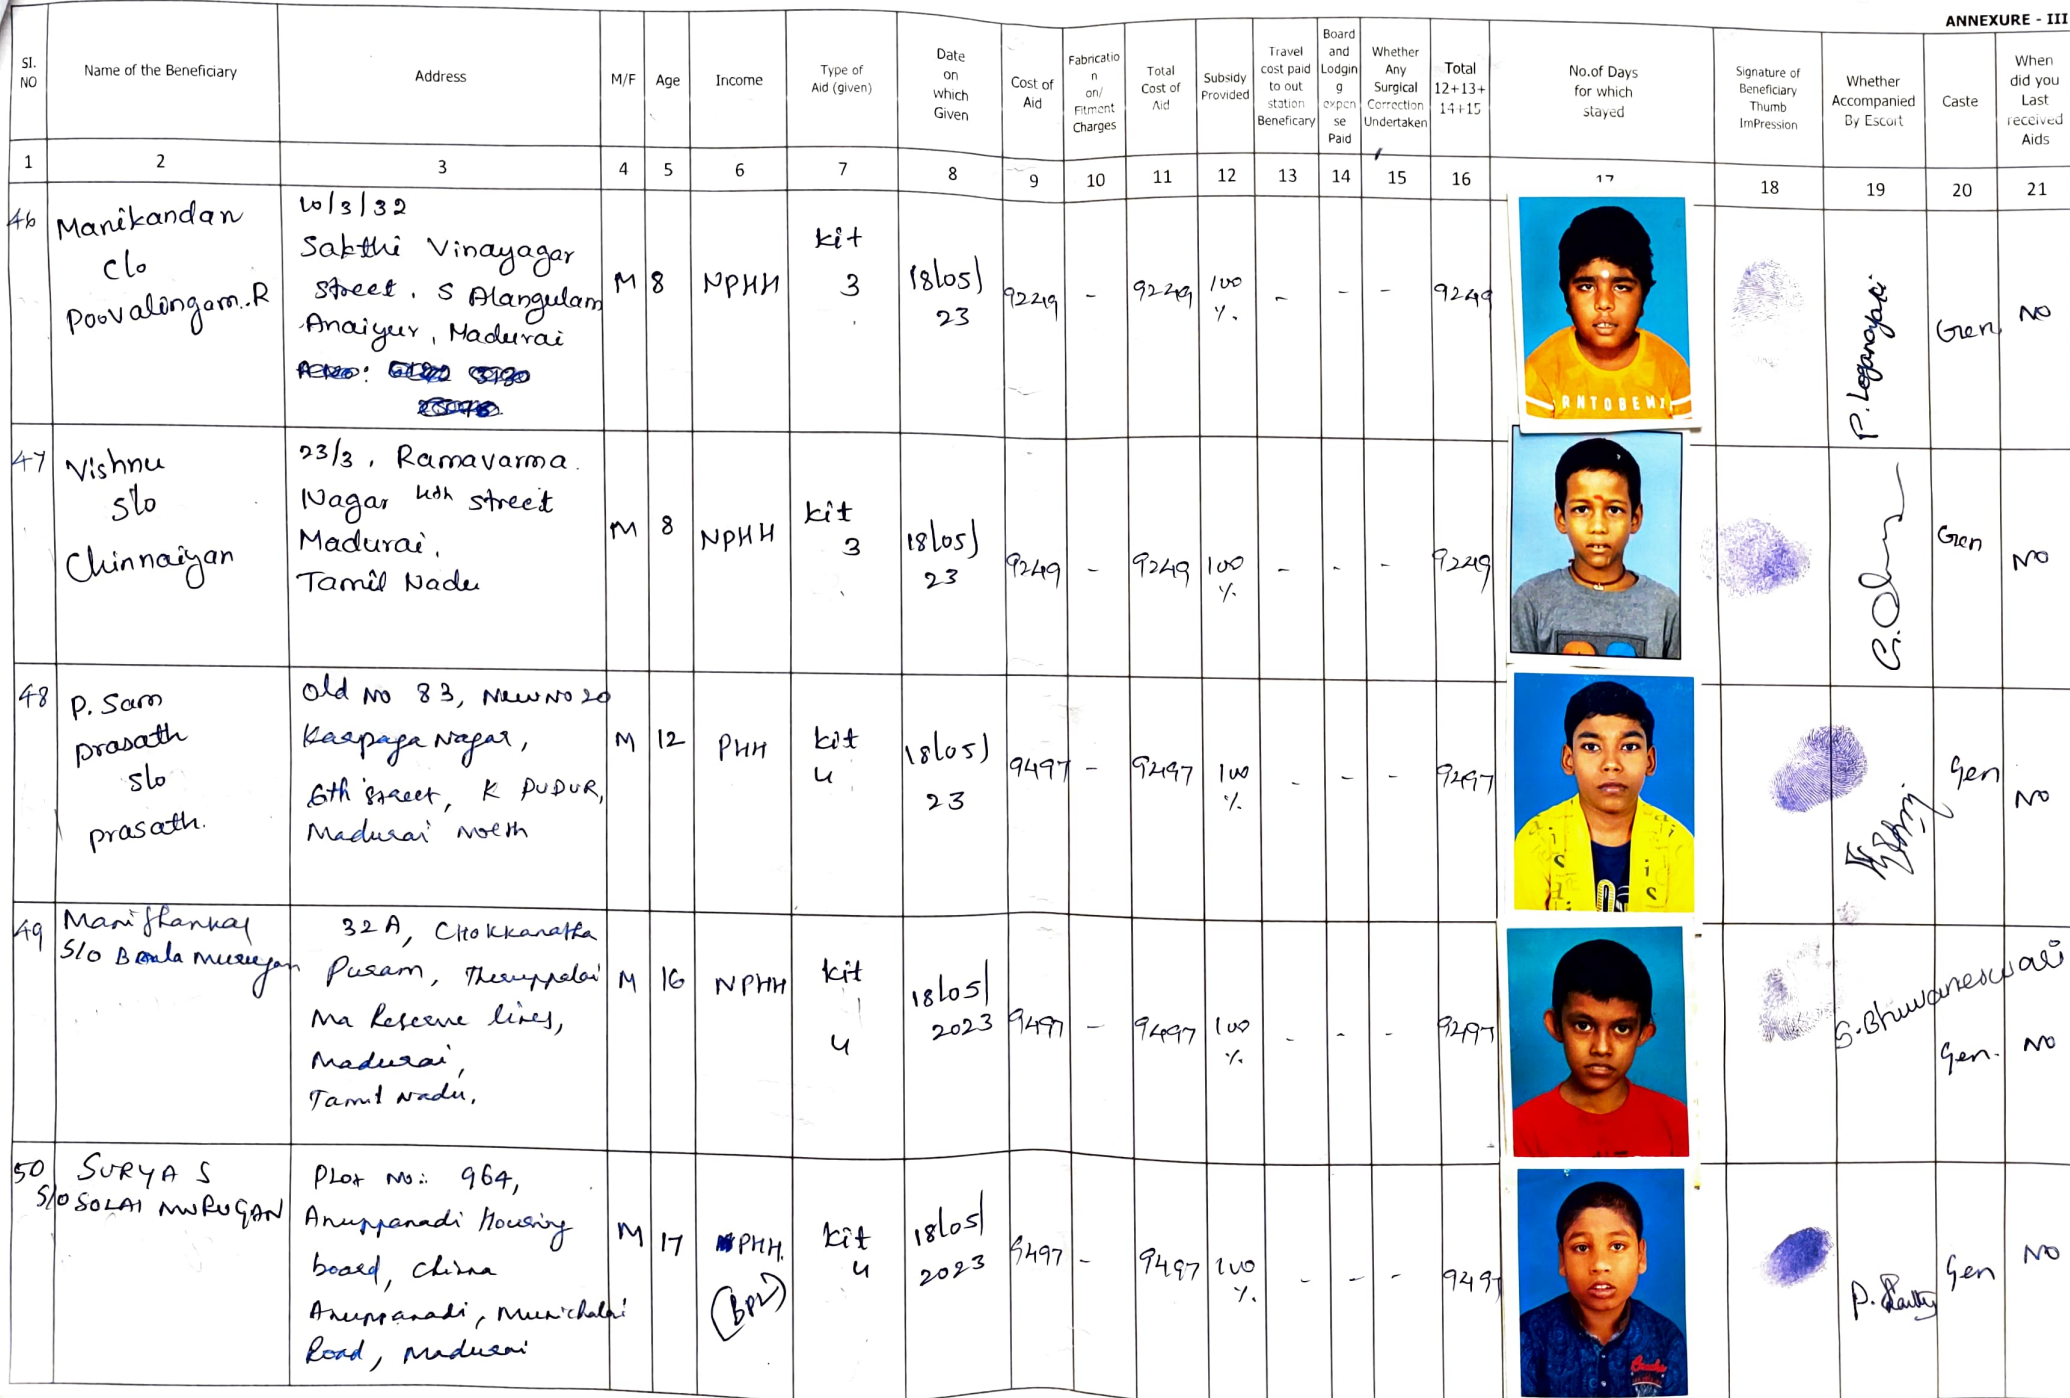 ANNEXURE - III
SI. NO
Name of the Beneficiary
Address
M/F
Age
Income
Type of Aid (given)
Date on which Given
Cost of Aid
Fabricatio n on/ Fitment Charges
Total Cost of Aid
Subsidy Provided
Travel cost paid to out station Beneficary
Board and Lodgin g expen se Paid
Whether Any Surgical Correction Undertaken
Total 12+13+ 14+15
No.of Days for which stayed
Signature of Beneficiary Thumb ImPression
Whether Accompanied By Escort
Caste
When did you Last received Aids
1 2 3 4 5 6 7 8 9 10 11 12 13 14 15 16 17 18 19 20 21
46
Manikandan
C/o
Poovalingam.R
10/3/32
Sakthi Vinayagar
Street, S Alangulam
Anaiyur, Madurai
M 8 NPHH
kit
3
18/05/
23
9249 - 9249 100
%.
- - - 9249
RNTOBENI
P. Loganayaki
Gen NO
47
Vishnu
S/o
Chinnaiyan
23/3, Ramavarma
Nagar 4th Street
Madurai,
Tamil Nadu
M 8 NPHH
kit
3
18/05/
23
9249 - 9249 100
%.
- - - 9249
Gen NO
48
P. Sam
prasath
S/o
prasath.
Old No 83, New No 20
Karpaga Nagar,
6th Street, K PUDUR,
Madurai North
M 12 PHH
kit
4
18/05/
23
9497 - 9497 100
%.
- - - 9497
Gen NO
49
Manishankar
S/o Baala Murugan
32 A, Chokkanatha
Puram, Theruppalai
Ma Reserve lines,
Madurai,
Tamil Nadu,
M 16 NPHH
kit
4
18/05/
2023
9497 - 9497 100
%.
- - - 9497
G. Bhuvaneswari
Gen. NO
50
SURYA S
S/O SOLAI MURUGAN
Plot No: 964,
Anuppanadi Housing
board, Chinna
Anuppanadi, Munichalai
Road, Madurai
M 17 PHH.
(BPL)
kit
4
18/05/
2023
9497 - 9497 100
%.
- - - 9497
Gen NO